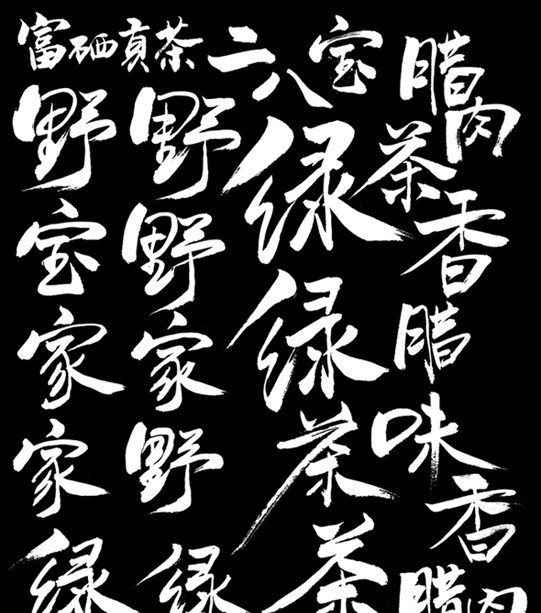 富硒贡茶
野
宝
家
家
绿
野
野
家
野
绿
二八宝
绿
绿
茶
茶
腊肉
茶香
腊味香
腊肉